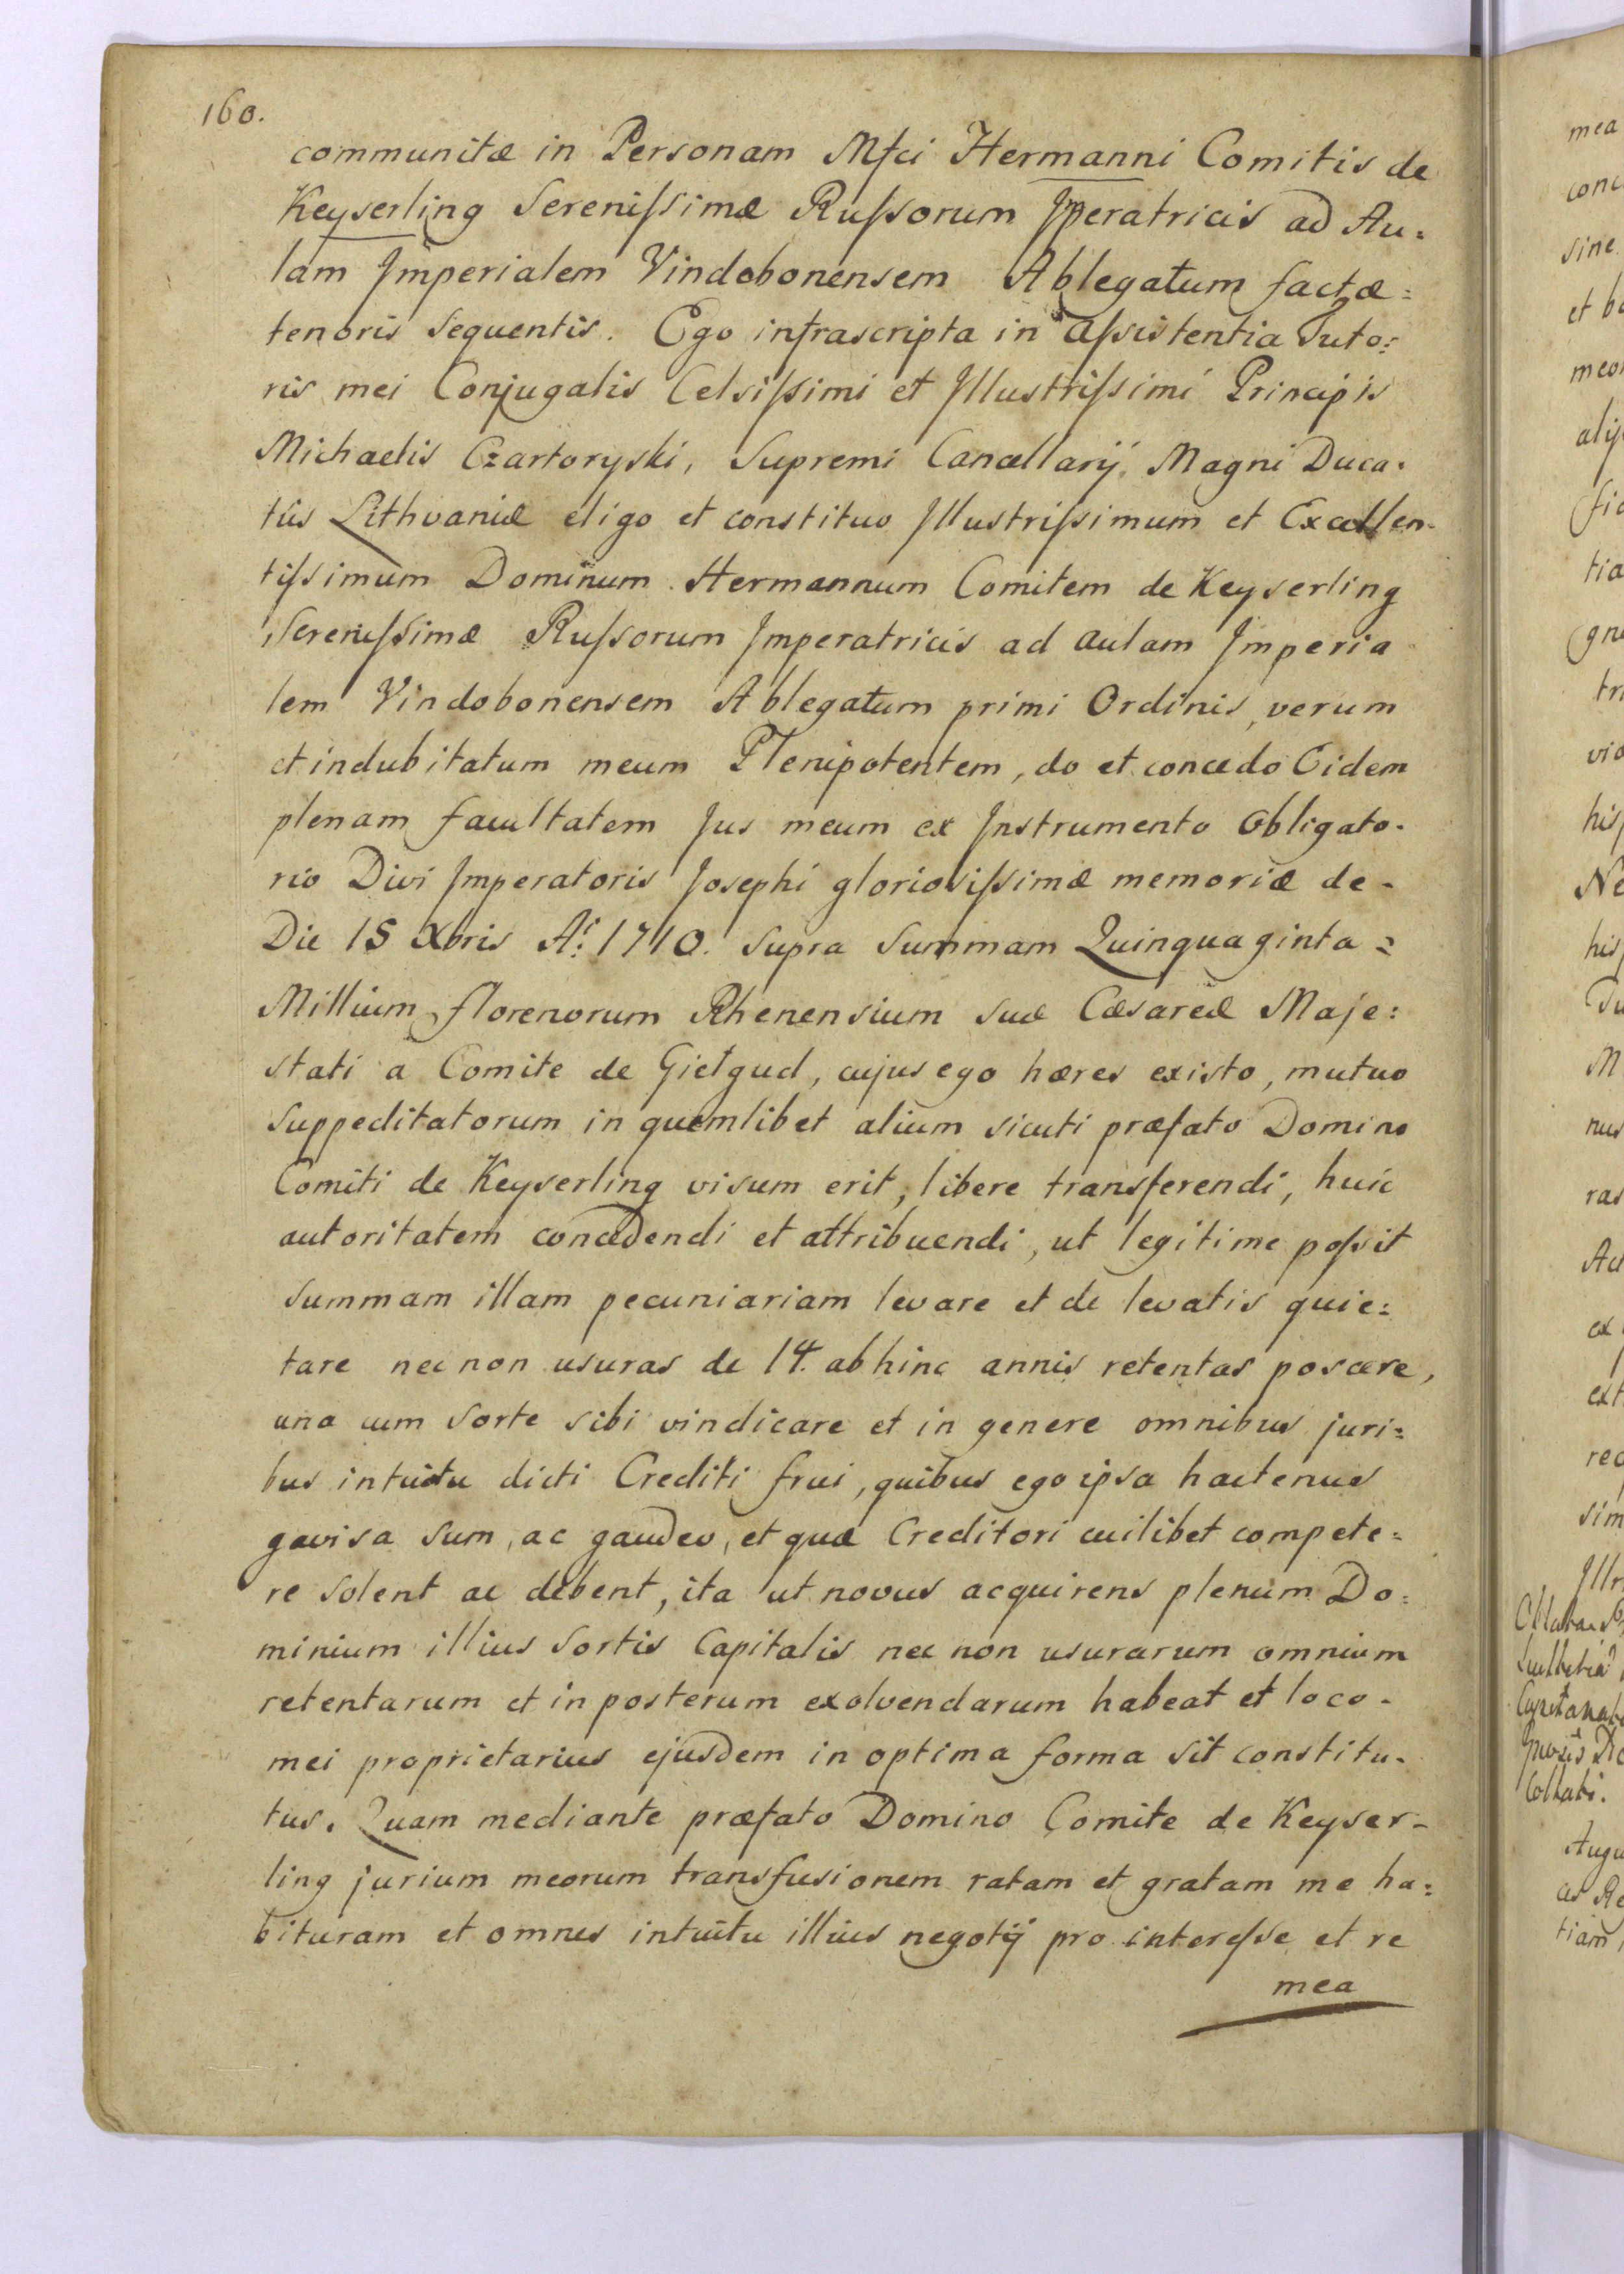 160.
communitæ in Personam Mfci Hermanni Comitis de
Keyserling Sereniſsimæ Ruſsorum Jperatricis ad Au=
lam Jmperialem Vindobonensem Ablegatum factæ=
tenoris sequentis. Ego infrascripta in aſsistentia Tuto=
ris mei Conjugalis Celsiſsimi et Jllustriſsimi Principis
Michaelis Czartoryski, Supremi Cancellarÿ Magni Duca-
tûs Lithvaniæ eligo et constituo Jllustriſsimum et Excellen-
tiſsimum Dominum Hermannum Comitem de Keyserling
Sereniſsimæ Ruſsorum Jmperatricis ad aulam Jmperia
lem Vindobonensem Ablegatum primi Ordinis, verum
et indubitatum meum Plenipotentem, do et concedo Eidem
plenam facultatem Jus meum ex Jnstrumento Obligato-
rio Divi Jmperatoris Josephi glorioſiſsimæ memoriæ de-
Die 15 Xbris Ai 1710. supra Summam Quinquaginta=
Millium florenorum Rhenensium suæ Cæsareæ Maje=
stati a Comite de Gietgud, cujus ego hæres existo, mutuo
suppeditatorum in quemlibet alium sicuti præfato Domino
Comiti de Keyserling visum erit, libere transferendi, huic
autoritatem concedendi et attribuendi, ut legitime poſsit
Summam illam pecuniariam levare et de levatis quie=
tare nec non usuras de 14. abhinc annis retentas poscere,
una cum Sorte sibi vindicare et in genere omnibus juri=
bus intuitu dicti Crediti frui, quibus ego ipsa hactenus
gavisa sum, ac gaudeo, et quæ Creditori cuilibet compete=
re solent ac debent, ita ut novus acquirens plenum Do=
minium illius Sortis Capitalis nec non usurarum omnium
retentarum et in posterum exolvendarum habeat et loco-
mei proprietarius ejusdem in optima forma sit constitu-
tus. Quam mediante præfato Domino Comite de Keyser-
ling jurium meorum transfusionem ratam et gratam me ha=
bituram et omnes intuitu illius negotÿ pro intereſse et re
mea